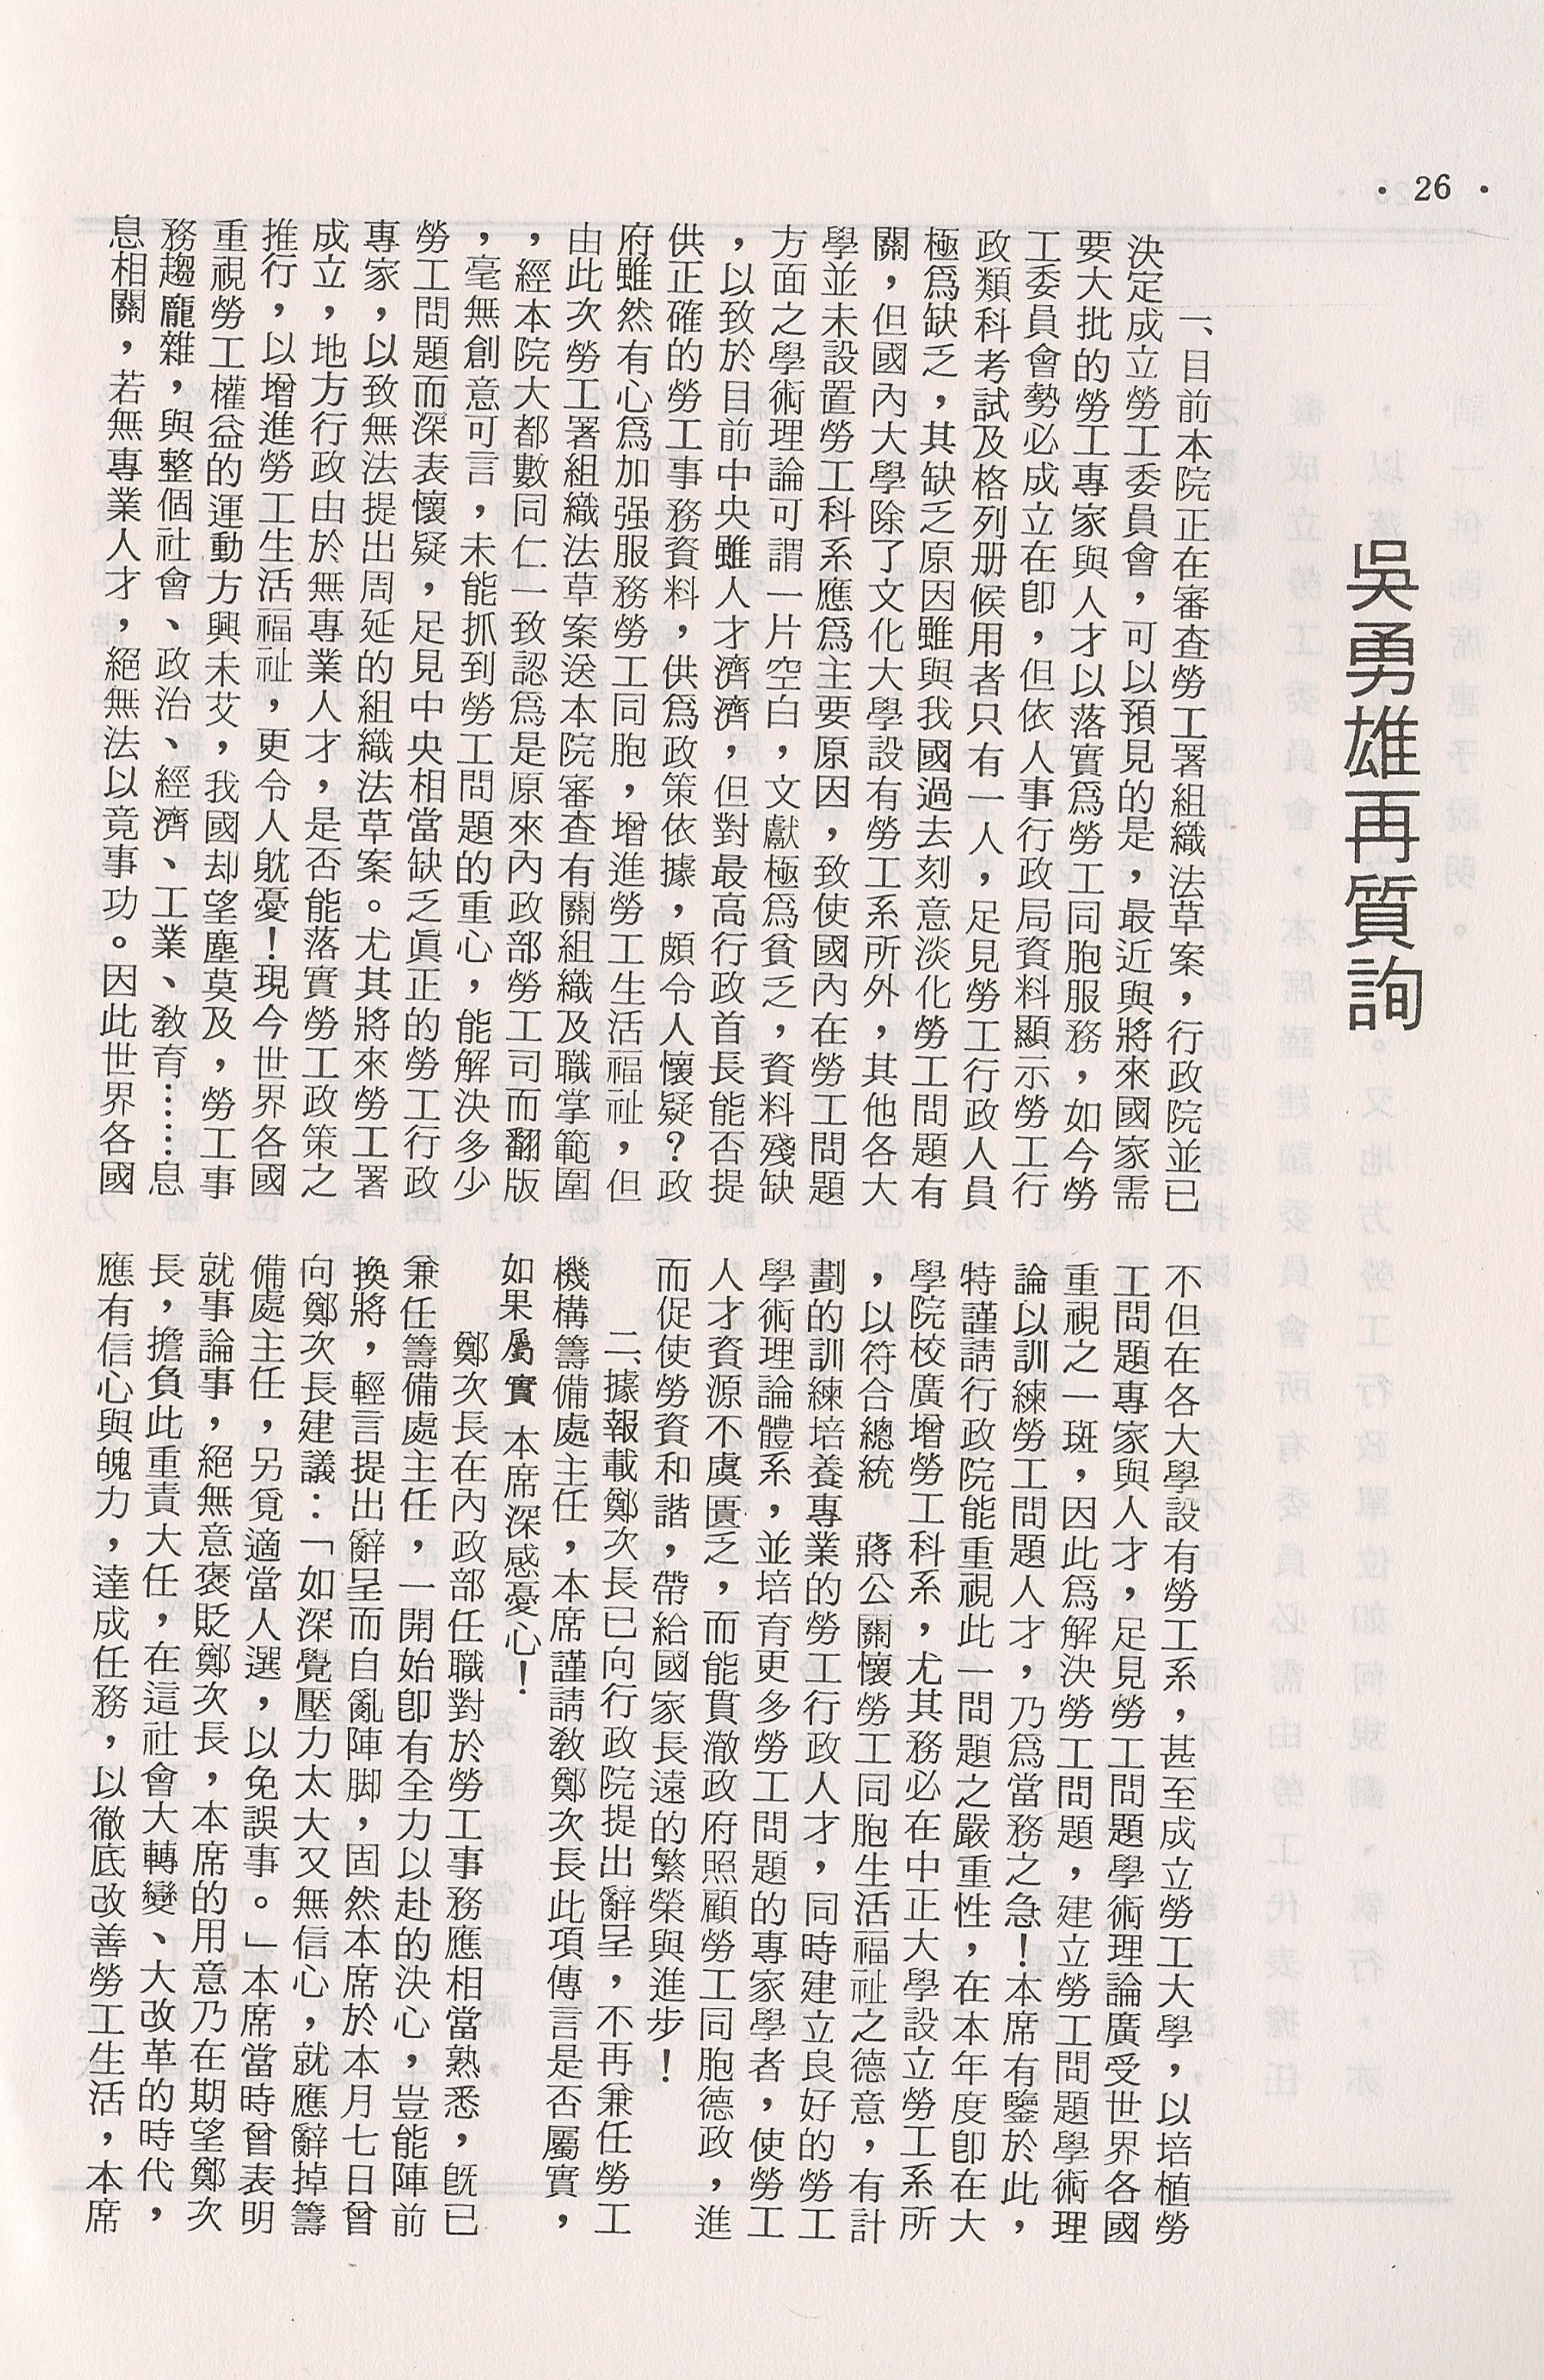 · 26 ·
吳勇雄再質詢
一、目前本院正在審查勞工署組織法草案，行政院並已
決定成立勞工委員會，可以預見的是，最近與將來國家需
要大批的勞工專家與人才以落實爲勞工同胞服務，如今勞
工委員會勢必成立在卽，但依人事行政局資料顯示勞工行
政類科考試及格列册候用者只有一人，足見勞工行政人員
極爲缺乏，其缺乏原因雖與我國過去刻意淡化勞工問題有
關，但國內大學除了文化大學設有勞工系所外，其他各大
學並未設置勞工科系應爲主要原因，致使國內在勞工問題
方面之學術理論可謂一片空白，文獻極爲貧乏，資料殘缺
，以致於目前中央雖人才濟濟，但對最高行政首長能否提
供正確的勞工事務資料，供爲政策依據，頗令人懷疑？政
府雖然有心爲加强服務勞工同胞，增進勞工生活福祉，但
由此次勞工署組織法草案送本院審查有關組織及職掌範圍
，經本院大都數同仁一致認爲是原來內政部勞工司而翻版
，毫無創意可言，未能抓到勞工問題的重心，能解決多少
勞工問題而深表懷疑，足見中央相當缺乏眞正的勞工行政
專家，以致無法提出周延的組織法草案。尤其將來勞工署
成立，地方行政由於無專業人才，是否能落實勞工政策之
推行，以增進勞工生活福祉，更令人躭憂！現今世界各國
重視勞工權益的運動方興未艾，我國却望塵莫及，勞工事
務趨龐雜，與整個社會、政治、經濟、工業、敎育……息
息相關，若無專業人才，絕無法以竟事功。因此世界各國
不但在各大學設有勞工系，甚至成立勞工大學，以培植勞
工問題專家與人才，足見勞工問題學術理論廣受世界各國
重視之一斑，因此爲解決勞工問題，建立勞工問題學術理
論以訓練勞工問題人才，乃爲當務之急！本席有鑒於此，
特謹請行政院能重視此一問題之嚴重性，在本年度卽在大
學院校廣增勞工科系，尤其務必在中正大學設立勞工系所
，以符合總統　蔣公關懷勞工同胞生活福祉之德意，有計
劃的訓練培養專業的勞工行政人才，同時建立良好的勞工
學術理論體系，並培育更多勞工問題的專家學者，使勞工
人才資源不虞匱乏，而能貫澈政府照顧勞工同胞德政，進
而促使勞資和諧，帶給國家長遠的繁榮與進步！
二、據報載鄭次長已向行政院提出辭呈，不再兼任勞工
機構籌備處主任，本席謹請敎鄭次長此項傳言是否屬實，
如果屬實　本席深感憂心！
鄭次長在內政部任職對於勞工事務應相當熟悉，旣已
兼任籌備處主任，一開始卽有全力以赴的決心，豈能陣前
換將，輕言提出辭呈而自亂陣脚，固然本席於本月七日曾
向鄭次長建議：「如深覺壓力太大又無信心，就應辭掉籌
備處主任，另覓適當人選，以免誤事。」本席當時曾表明
就事論事，絕無意褒貶鄭次長，本席的用意乃在期望鄭次
長，擔負此重責大任，在這社會大轉變、大改革的時代，
應有信心與魄力，達成任務，以徹底改善勞工生活，本席